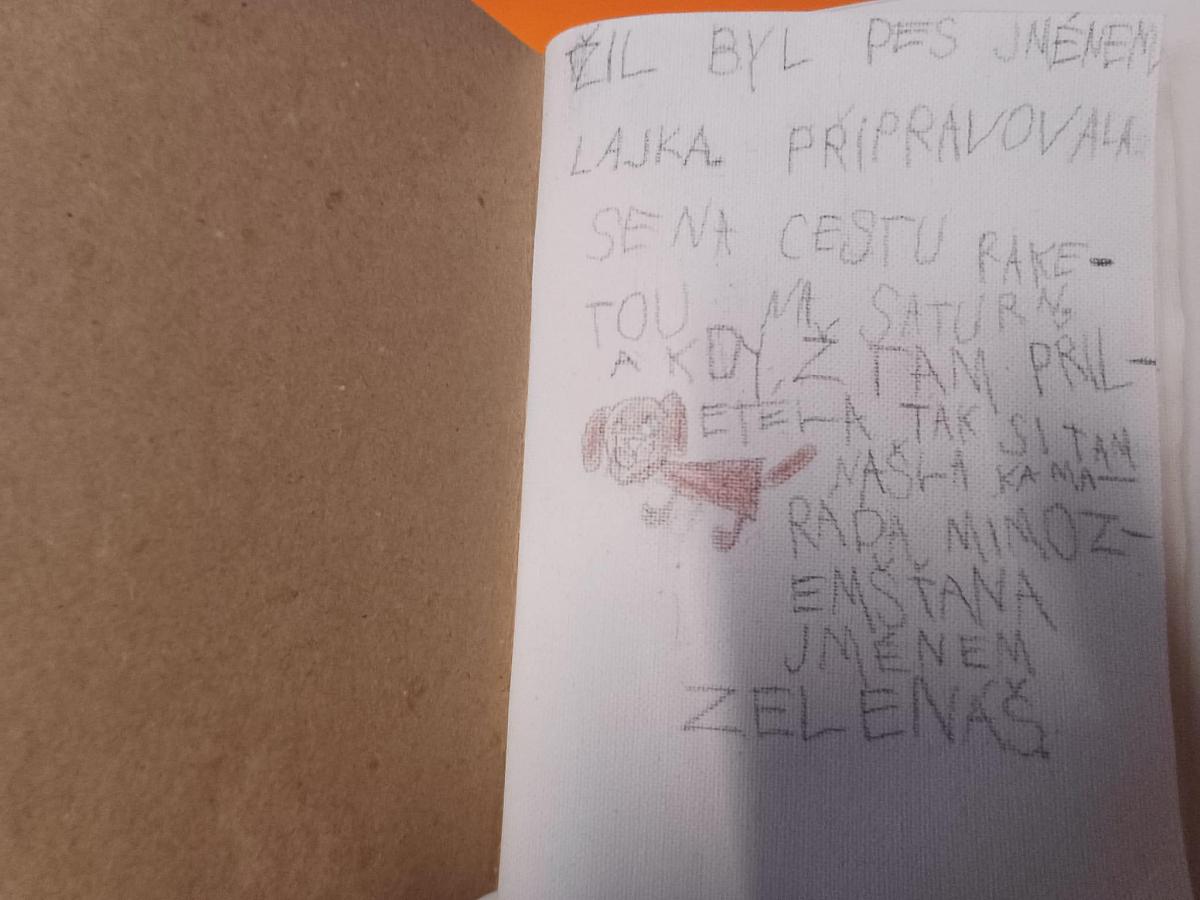 ŽIL BYL PES JNÉNEM
LAJKA. PŘÍPRAVOVALA
SE NA CESTU RAKE-
TOU NA SATURN
A KDYŽ TAM PŘIL-
ETELA TAK SI TAM
NAŠLA KAMA-
RADA MINOZ-
EMŠŤANA
JMÉNEM
ZELENÁŠ.